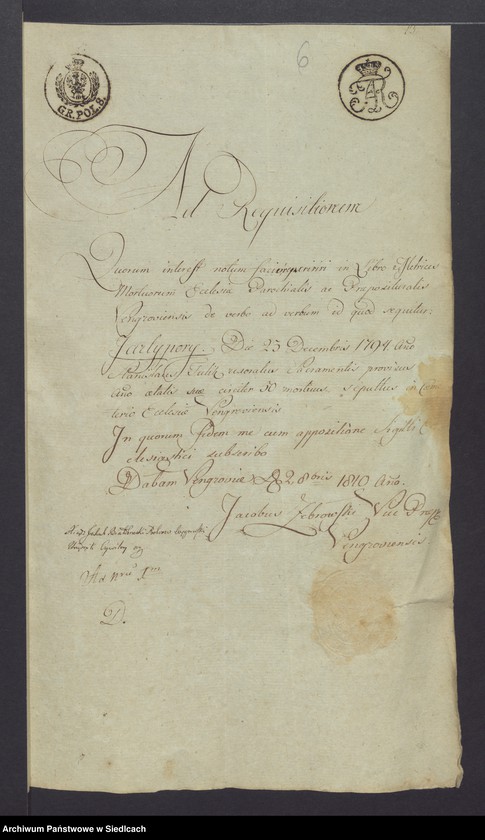 6
GR. POL 8.
AR
Ad Requisitionem
Quorum interest notum in Libro Metrices
Mortuorum Ecclesiæ Parochialis ac Præposituralis
Vengroviensis de verbo ad verbum id quod sequitur:
Jartypory. Die 23 Decembris 1794 Ano
Stanislaus Sacramentis provisus
ano ætatis suæ circiter mortuus, sepultus in
terio Ecclesiæ Vengroviensis
In quorum fidem me cum appositione Sigilli
clesiastici subscribo
Dabam Vengroviæ D 2 8bris 1810 Ano.
Jacobus Zebrowski Vice Præp.
Vengroviensis.
Ad Nrum 1m
D.
Archiwum Państwowe w Siedlcach